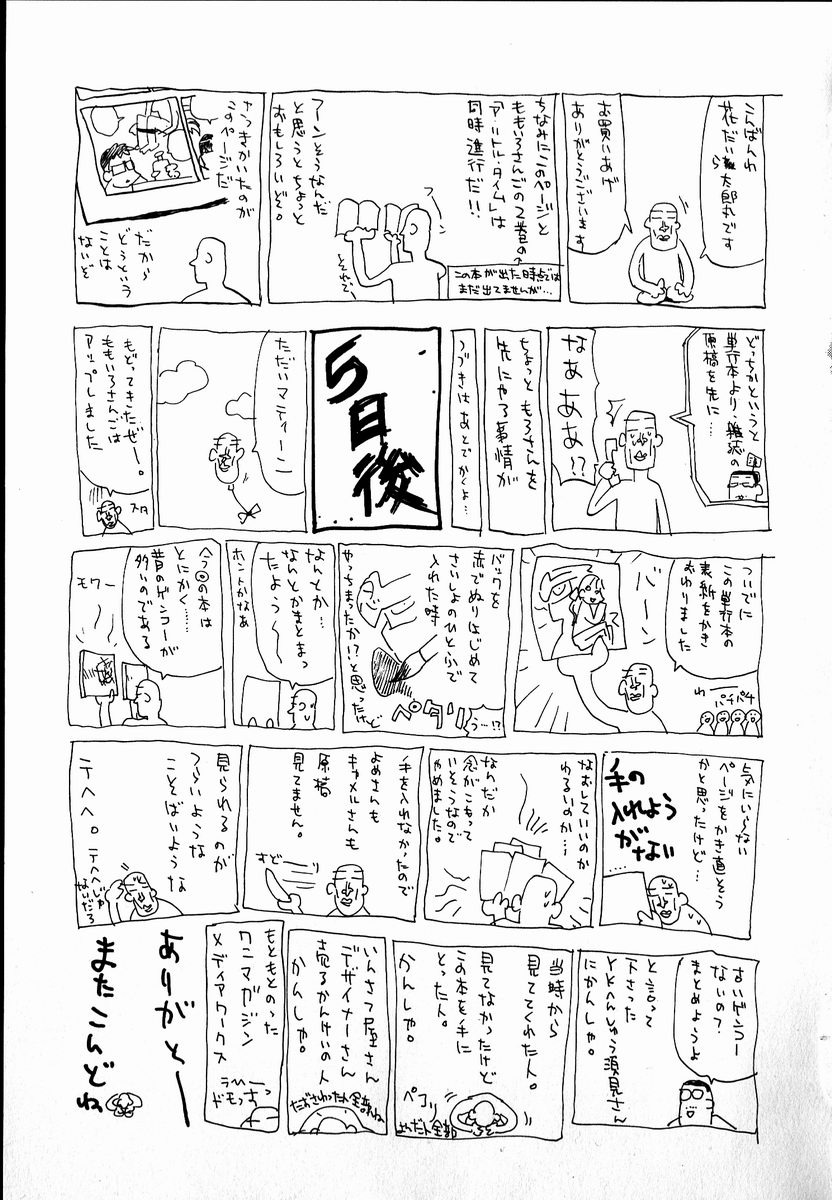 こんばんわ
花だい太郎丸です
お買いあげ
ありがとうございます
ちなみにこのページと
ももいろさんごの2巻の
「アットル・タイム」は
同時進行だ!!
この本が出た時点では
まだ出てませんが…
フーン
フーンそうなんだ
と思うとちょっと
おもしろいぞ。
それで
さっきかいたのが
このページだ
だから
どうという
ことは
ないぞ
どっちかというと
単行本より、雑誌の
原稿を先に…
なぁぁぁ!?
ちょっともろさんを
先にやる事情が
つづきはあとでかくよ…
5日後
ただいマティーン
もどってきたぜー。
ももいろさんごは
アップしました
スタ
ついでに
この単行本の
表紙をかき
おわりました
バーン
わー
パチパチ
バックを
赤でぬりはじめて
さいしょのひとふで
入れた時
ペタリ
う…!?
やっちまったか!?と思ったけど
なんとか…
なんとかまとまっ
たよう〜
ホントかなあ
今回の本は
とにかく……
昔のゲンコーが
多いのである
モワー
気にいらない
ページをかき直そう
かと思ったけど…
手の
入れよう
がない
…
なおしていいのか
わるいのか…
なんだか
念がこもって
いそうなので
やめました。
手を入れなかったので
よめさんも
キャメルさんも
原稿
見てません。
すどーり
見られるのが
つらいような
こそばいような
テヘヘ。
テヘヘじゃ
ないだろ
古いゲンコー
ないの?
まとめようよ
と言って
下さった
YKへんしゅう須見さん
にかんしゃ。
当時から
見ててくれた人。
見てなかったけど
この本を手に
とった人。
かんしゃ。
ペコリ
よめた人全部
いんさつ屋さん
デザイナーさん
売るかんけいの人
かんしゃ。
たずさわった人全部ね
もともとのった
ワニマガジン
メディアワークス
う〜っ
ドモっさっ
ありがとー
またこんどね